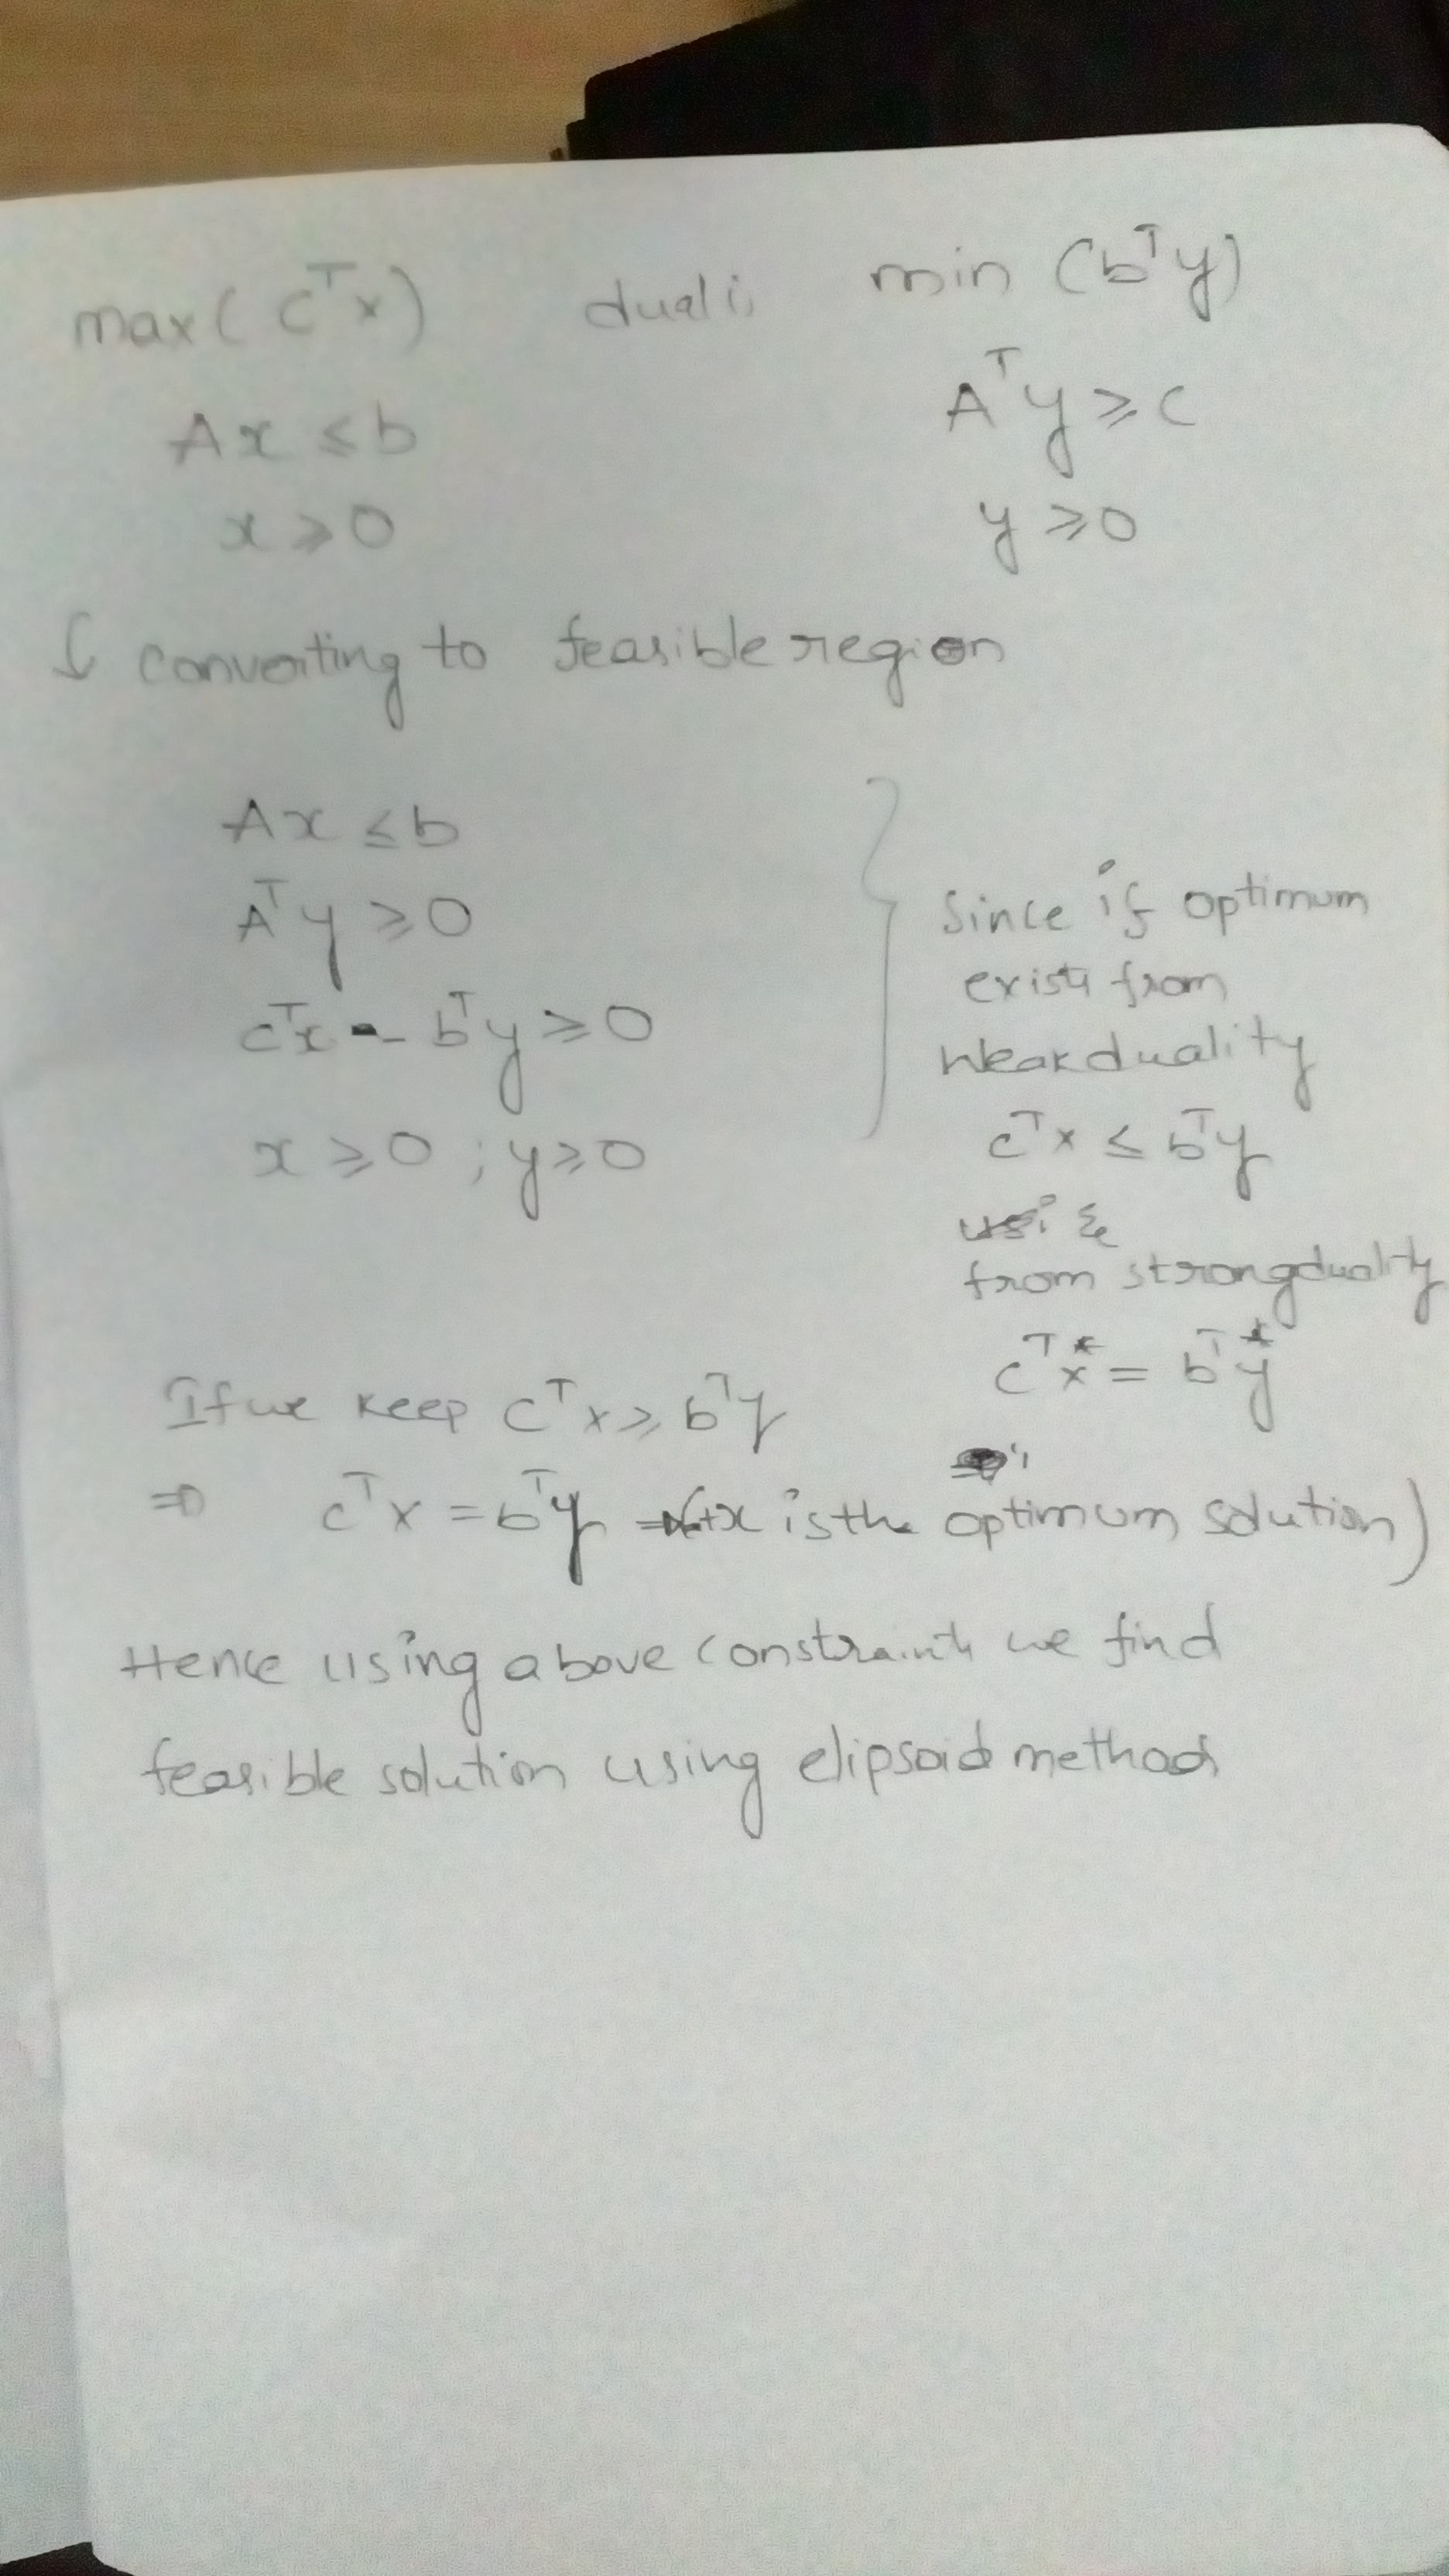 max(cᵀx) dual is min (bᵀy)
Ax ≤ b Aᵀy ≥ c
x ≥ 0 y ≥ 0
↓ converting to feasible region
Ax ≤ b
Aᵀy ≥ 0
cᵀx - bᵀy ≥ 0
x ≥ 0 ; y ≥ 0
Since if optimum
exists from
weak duality
cᵀx ≤ bᵀy
&
from strong duality
cᵀx* = bᵀy*
If we keep cᵀx ≥ bᵀy
⇒ cᵀx = bᵀy (x is the optimum solution)
Hence using above constraints we find
feasible solution using elipsoid method